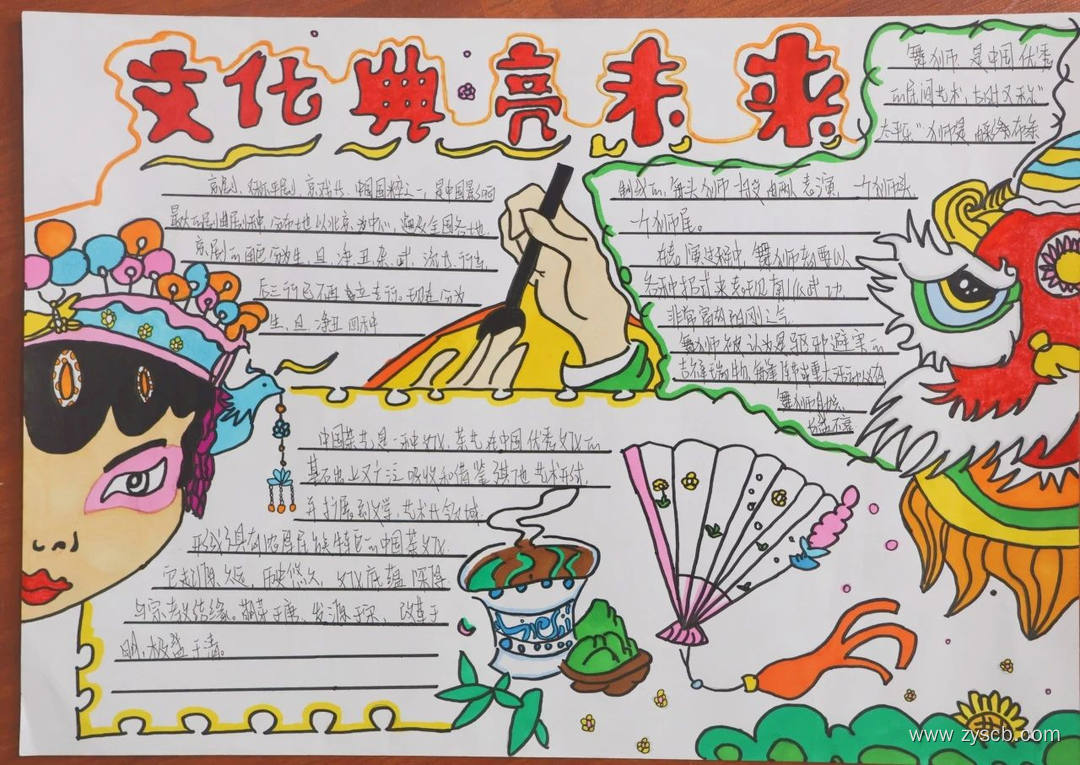 文化典亮未来
舞狮 是中国优秀
的民间艺术,古时又称为
太平乐"狮是 由彩布条
制成的,每头狮 由 两 表演,一个狮头
一个狮尾。
在表演过程中,舞狮者要以
各种招式来表现南派武功,
非常富有阳刚之气
舞狮被认为是驱邪避害的
吉祥瑞物,每逢 节或重大活动
舞狮助兴
长盛不衰
京剧,又称平剧、京戏等,中国国粹之一,是中国影响
最大的戏曲剧种,分布地以北京为中心,遍及全国各地
京剧的 分为生、旦、净、丑、杂、武、流 等行当
后三行已不再 立专行。现在 分为
生、旦、净、丑 四
中国茶艺是一种文化,茶艺在中国优秀文化的
基础上又广泛吸收和借鉴 其他 艺术形式,
并扩展到文学、艺术等领域
形成了具有浓厚民族特色的中国茶文化
它起源久远,历史悠久,文化底蕴 深厚
与宗教结缘。萌芽于唐、发源于宋、改革于
明、极盛于清。
www.zyscb.com